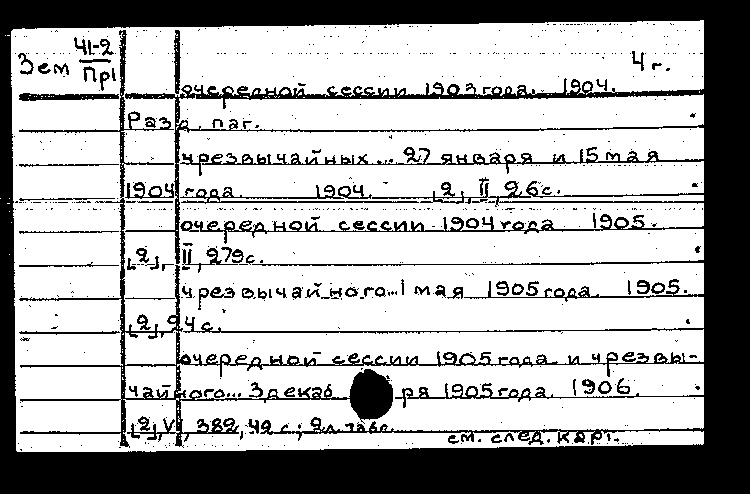 Зем 41-2
Пр1
4 г.
очередной сессии 1903 года. 1904.
Разд. паг.
чрезвычайных... 27 января и 15 мая
1904 года. 1904. [2], II, 26 с.
очередной сессии 1904 года 1905.
[2], II, 279 с.
чрезвычайного... 1 мая 1905 года. 1905.
[2], 24 с.
очередной сессии 1905 года и чрезвы-
чайного... 3 декабря 1905 года. 1906.
[2], V, 382, 42 с.; 2 л. табл.
см. след. карт.